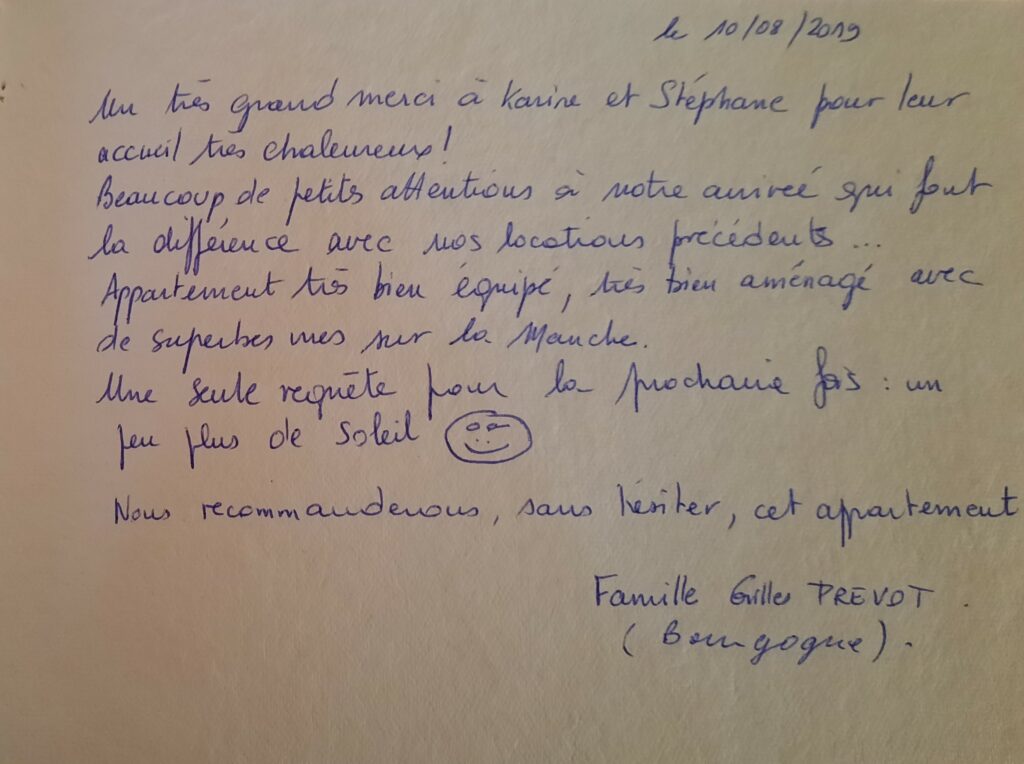 le 10/08/2019
Un très grand merci à Karine et Stéphane pour leur
accueil très chaleureux !
Beaucoup de petits attentions à notre arrivée qui font
la différence avec nos locations précédents ...
Appartement très bien équipé, très bien aménagé avec
de superbes vues sur la Manche.
Une seule requête pour la prochaine fois : un
peu plus de soleil
Nous recommanderons, sans hésiter, cet appartement
Famille Gilles PREVOT .
(Bourgogne).